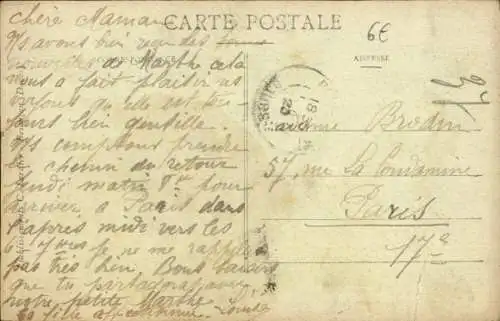 Chère Maman
CARTE POSTALE
6€
Ns avons bien reçu des
nouvelles de Marthe cela
ADRESSE
nous a fait plaisir ns
voyons qu'elle est tou-
jours bien gentille.
Ns comptons prendre
le chemin du retour
lundi matin pour
arriver à Paris dans
l'après midi vers les
6 je ne me rappelle
pas très bien. Bons baisers
que tu partageras avec
notre petite Marthe
ta fille affectionnée Louise
18
25
Madame Brodin
57, rue La Condamine
Paris
17e